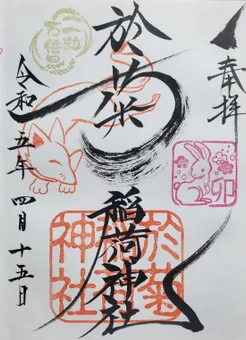 奉拝
卯
於菊
稲荷神社
於菊
神社
一粒
万倍日
令和五年四月十五日